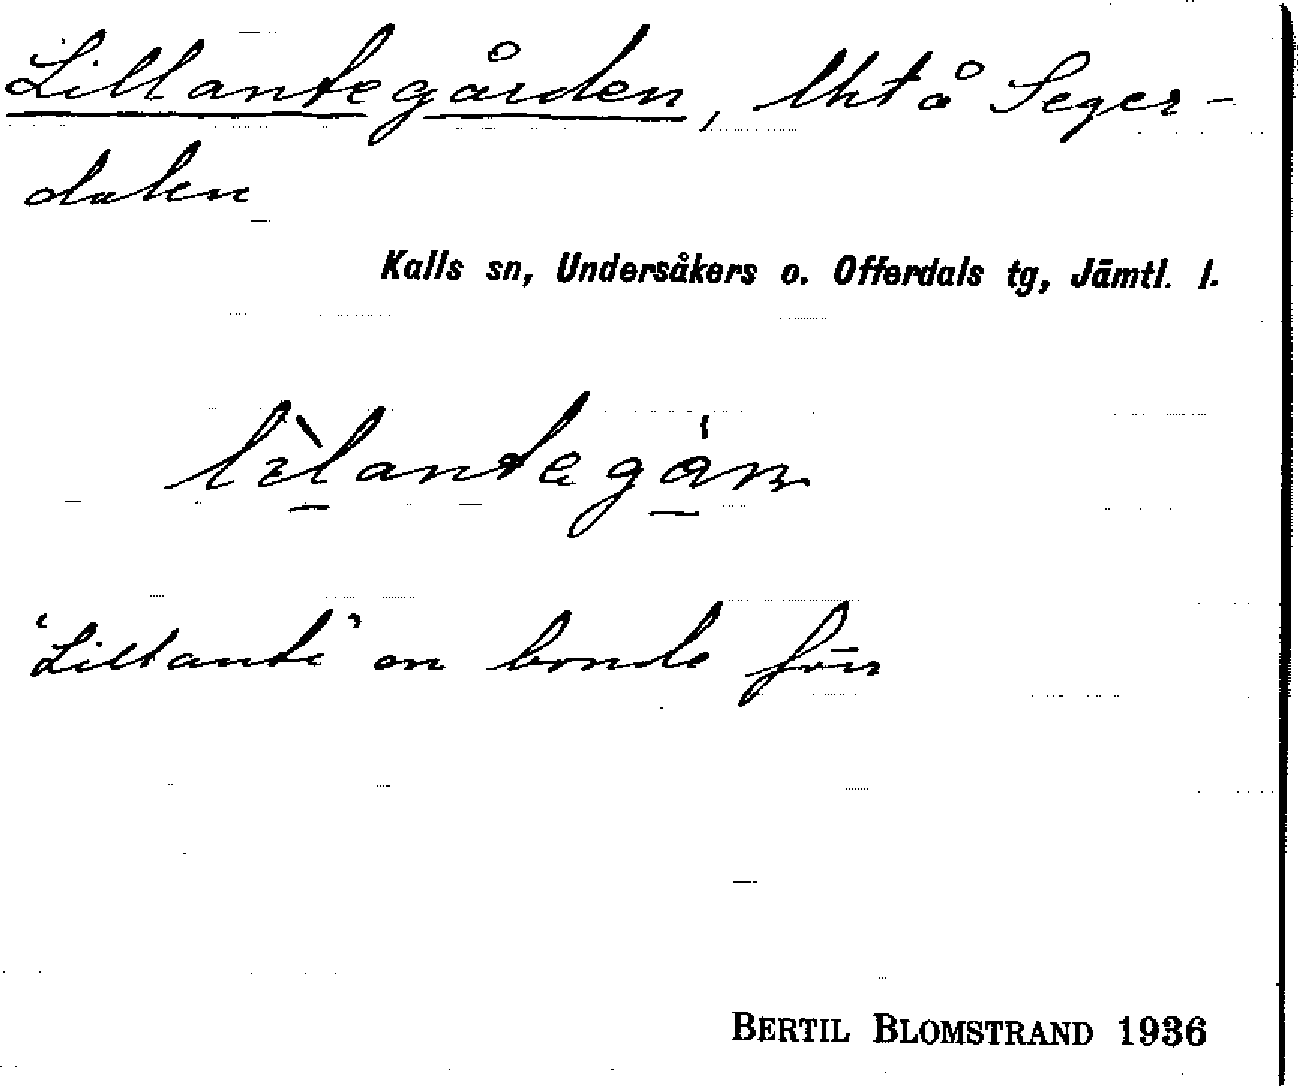 Lillantegården, lht å Seger-
dalen
Kalls sn, Undersåkers o. Offerdals tg, Jämtl. l.
"Lillante" en bonde förr
BERTIL BLOMSTRAND 1936